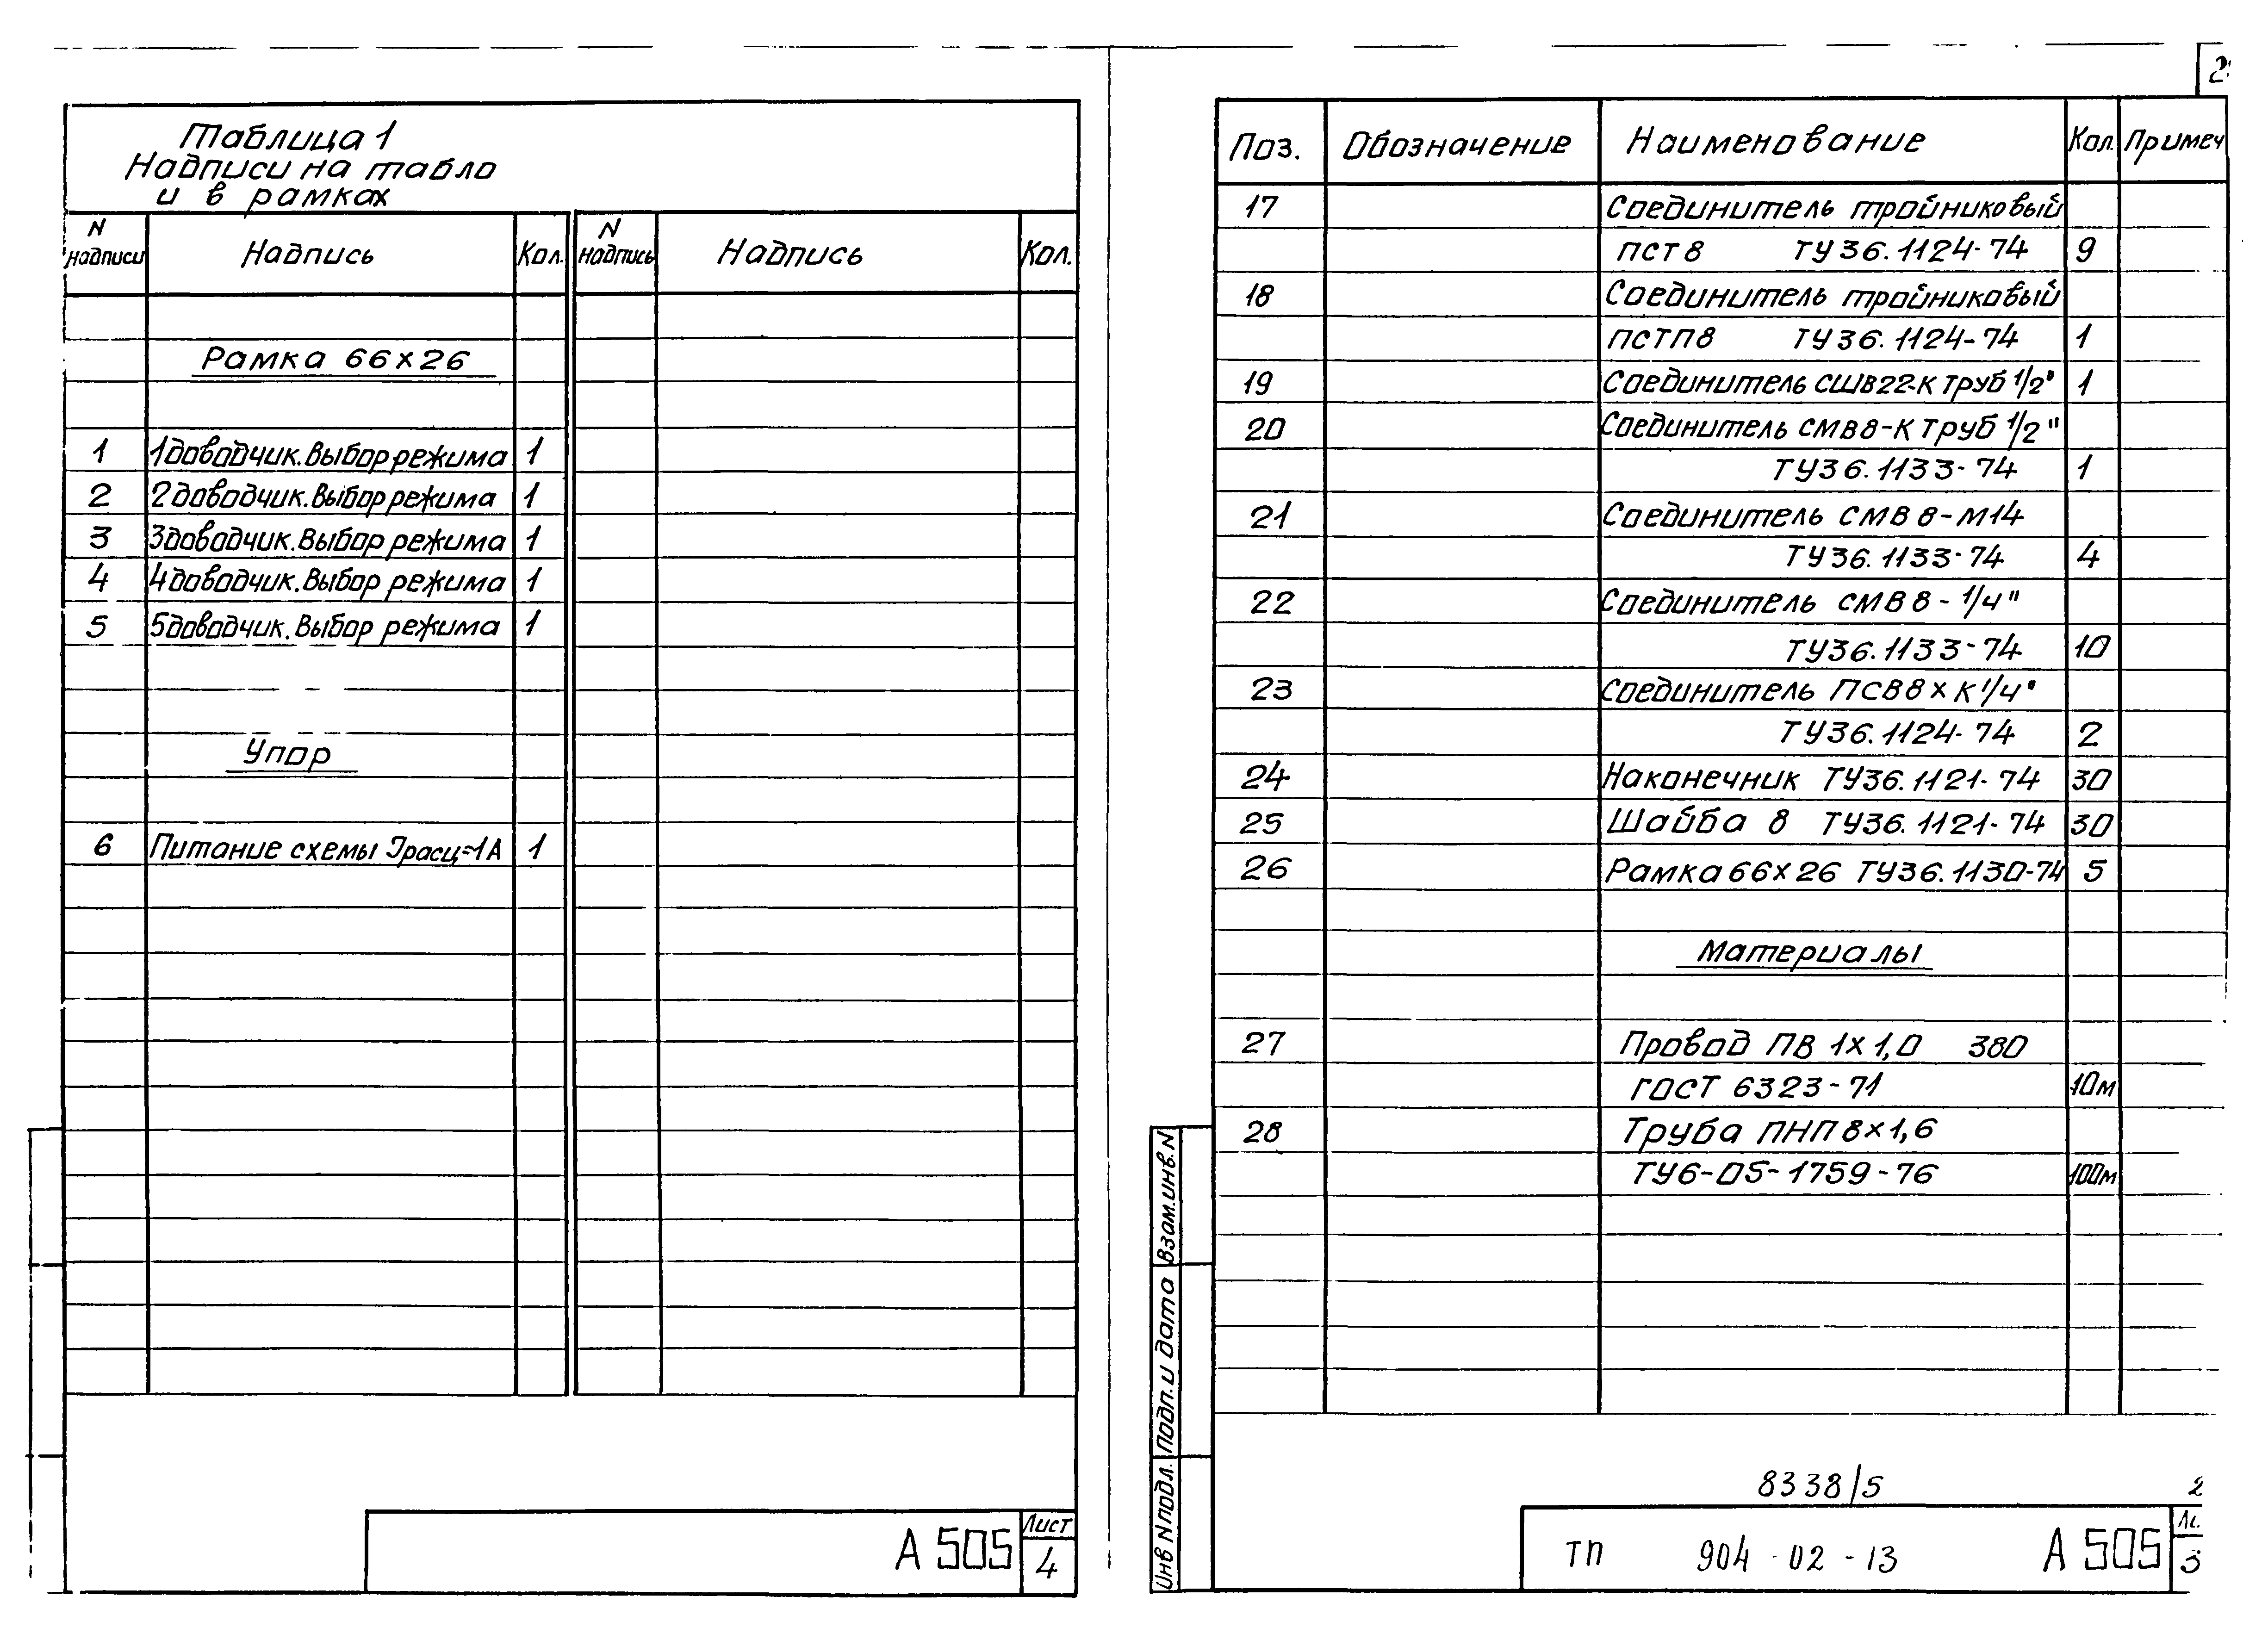 Таблица 1
Надписи на табло
и в рамках
N надписи Надпись Кол. N надпись Надпись Кол.
Рамка 66х26
1 1доводчик.Выбор режима 1
2 2доводчик.Выбор режима 1
3 3доводчик.Выбор режима 1
4 4доводчик.Выбор режима 1
5 5доводчик.Выбор режима 1
Упор
6 Питание схемы Iрасц=1А 1
А 505
Лист
4
Поз. Обозначение Наименование Кол. Примеч
17 Соединитель тройниковый
ПСТ 8 ТУ 36.1124-74 9
18 Соединитель тройниковый
ПСТП8 ТУ 36.1124-74 1
19 Соединитель СШВ22-К ТРУБ 1/2" 1
20 Соединитель СМВ8-К ТРУБ 1/2"
ТУ36.1133-74 1
21 Соединитель СМВ 8-М14
ТУ36.1133-74 4
22 Соединитель СМВ 8-1/4"
ТУ36.1133-74 10
23 Соединитель ПСВ8 х К1/4"
ТУ36.1124-74 2
24 Наконечник ТУ36.1121-74 30
25 Шайба 8 ТУ36.1121-74 30
26 Рамка 66х26 ТУ36.1130-74 5
Материалы
27 Провод ПВ 1х1,0 380
ГОСТ 6323-71 10м
28 Труба ПНП 8х1,6
ТУ6-05-1759-76 100м
Взам.инв.N
Подп.и дата
Инв N подл.
8338/5 2
ТП 904-02-13 А 505
3